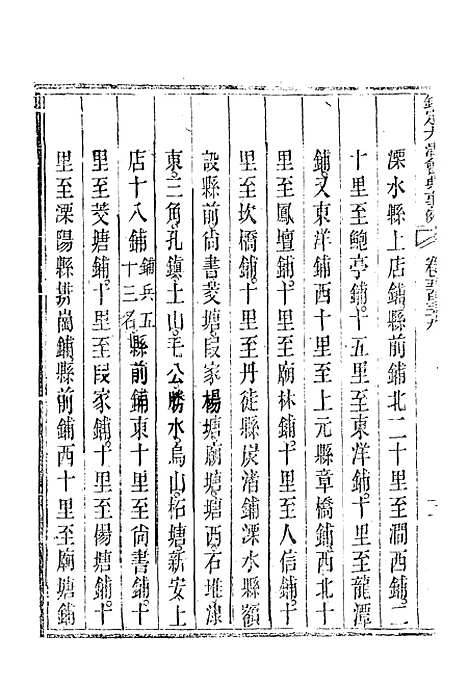 欽定大清會典事例 卷五百三十九
溧水縣上店鋪縣前鋪北二十里至澗西鋪二
十里至鮑亭鋪十五里至東洋鋪十里至龍潭
鋪又東洋鋪西十里至上元縣章橋鋪西北十
里至鳳壇鋪十里至廟林鋪十里至人信鋪十
里至坎橋鋪十里至丹徒縣炭渚鋪溧水縣額
設縣前尚書茭塘段家楊塘廟塘塘西石堆湶
東三角孔鎮土山毛公勝水烏山柘塘新安上
店十八鋪鋪兵五十三名縣前鋪東十里至尚書鋪十
里至茭塘鋪十里至段家鋪十里至楊塘鋪十
里至溧陽縣崗鋪縣前鋪西十里至廟塘鋪